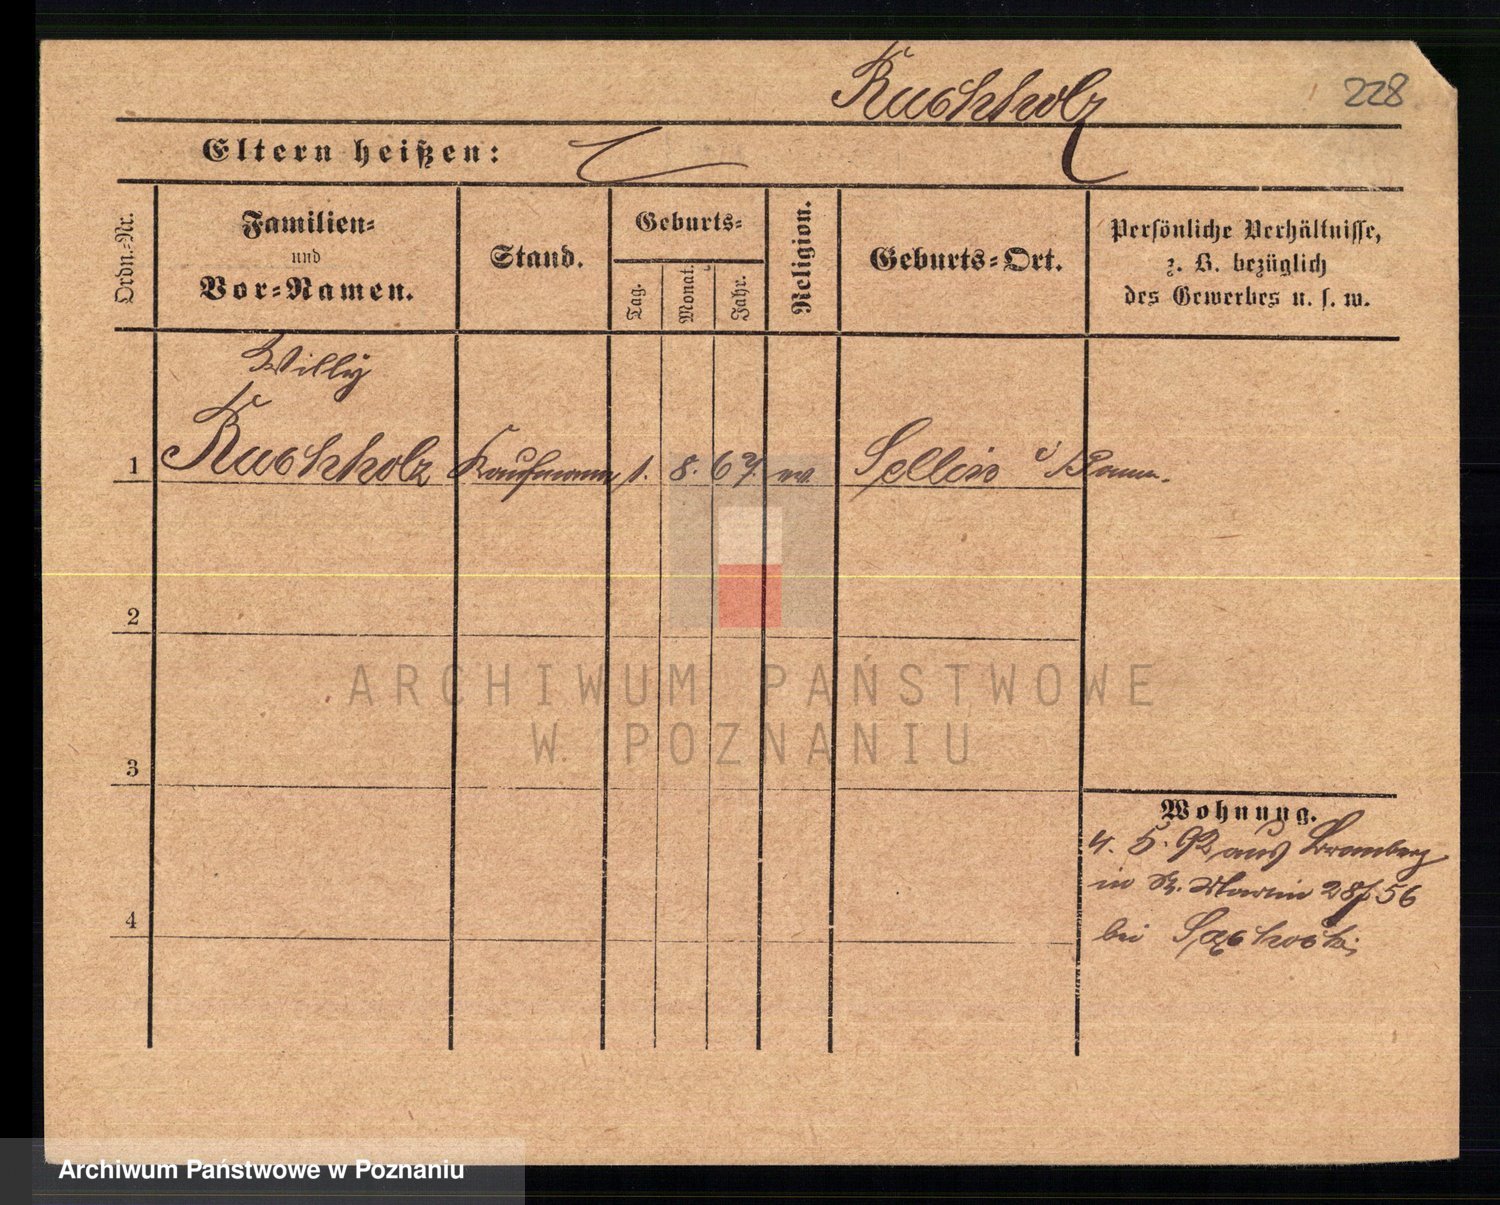 Ruchholz
228
Eltern heißen:
Ordn.-Nr.
Familien-
und
Vor-Namen.
Stand.
Geburts-
Tag.
Monat.
Jahr.
Religion.
Geburts-Ort.
Persönliche Verhältnisse,
z. B. bezüglich
des Gewerbes u. s. w.
Willy
1 Ruchholz Kaufmann 1. 8. 67. ev. Sellin i/Pomm.
2
3
4
Wohnung.
4. 5. 92 aus Bromberg
in St. Martin 28/56
bei
ARCHIWUM PAŃSTWOWE
W POZNANIU
Archiwum Państwowe w Poznaniu